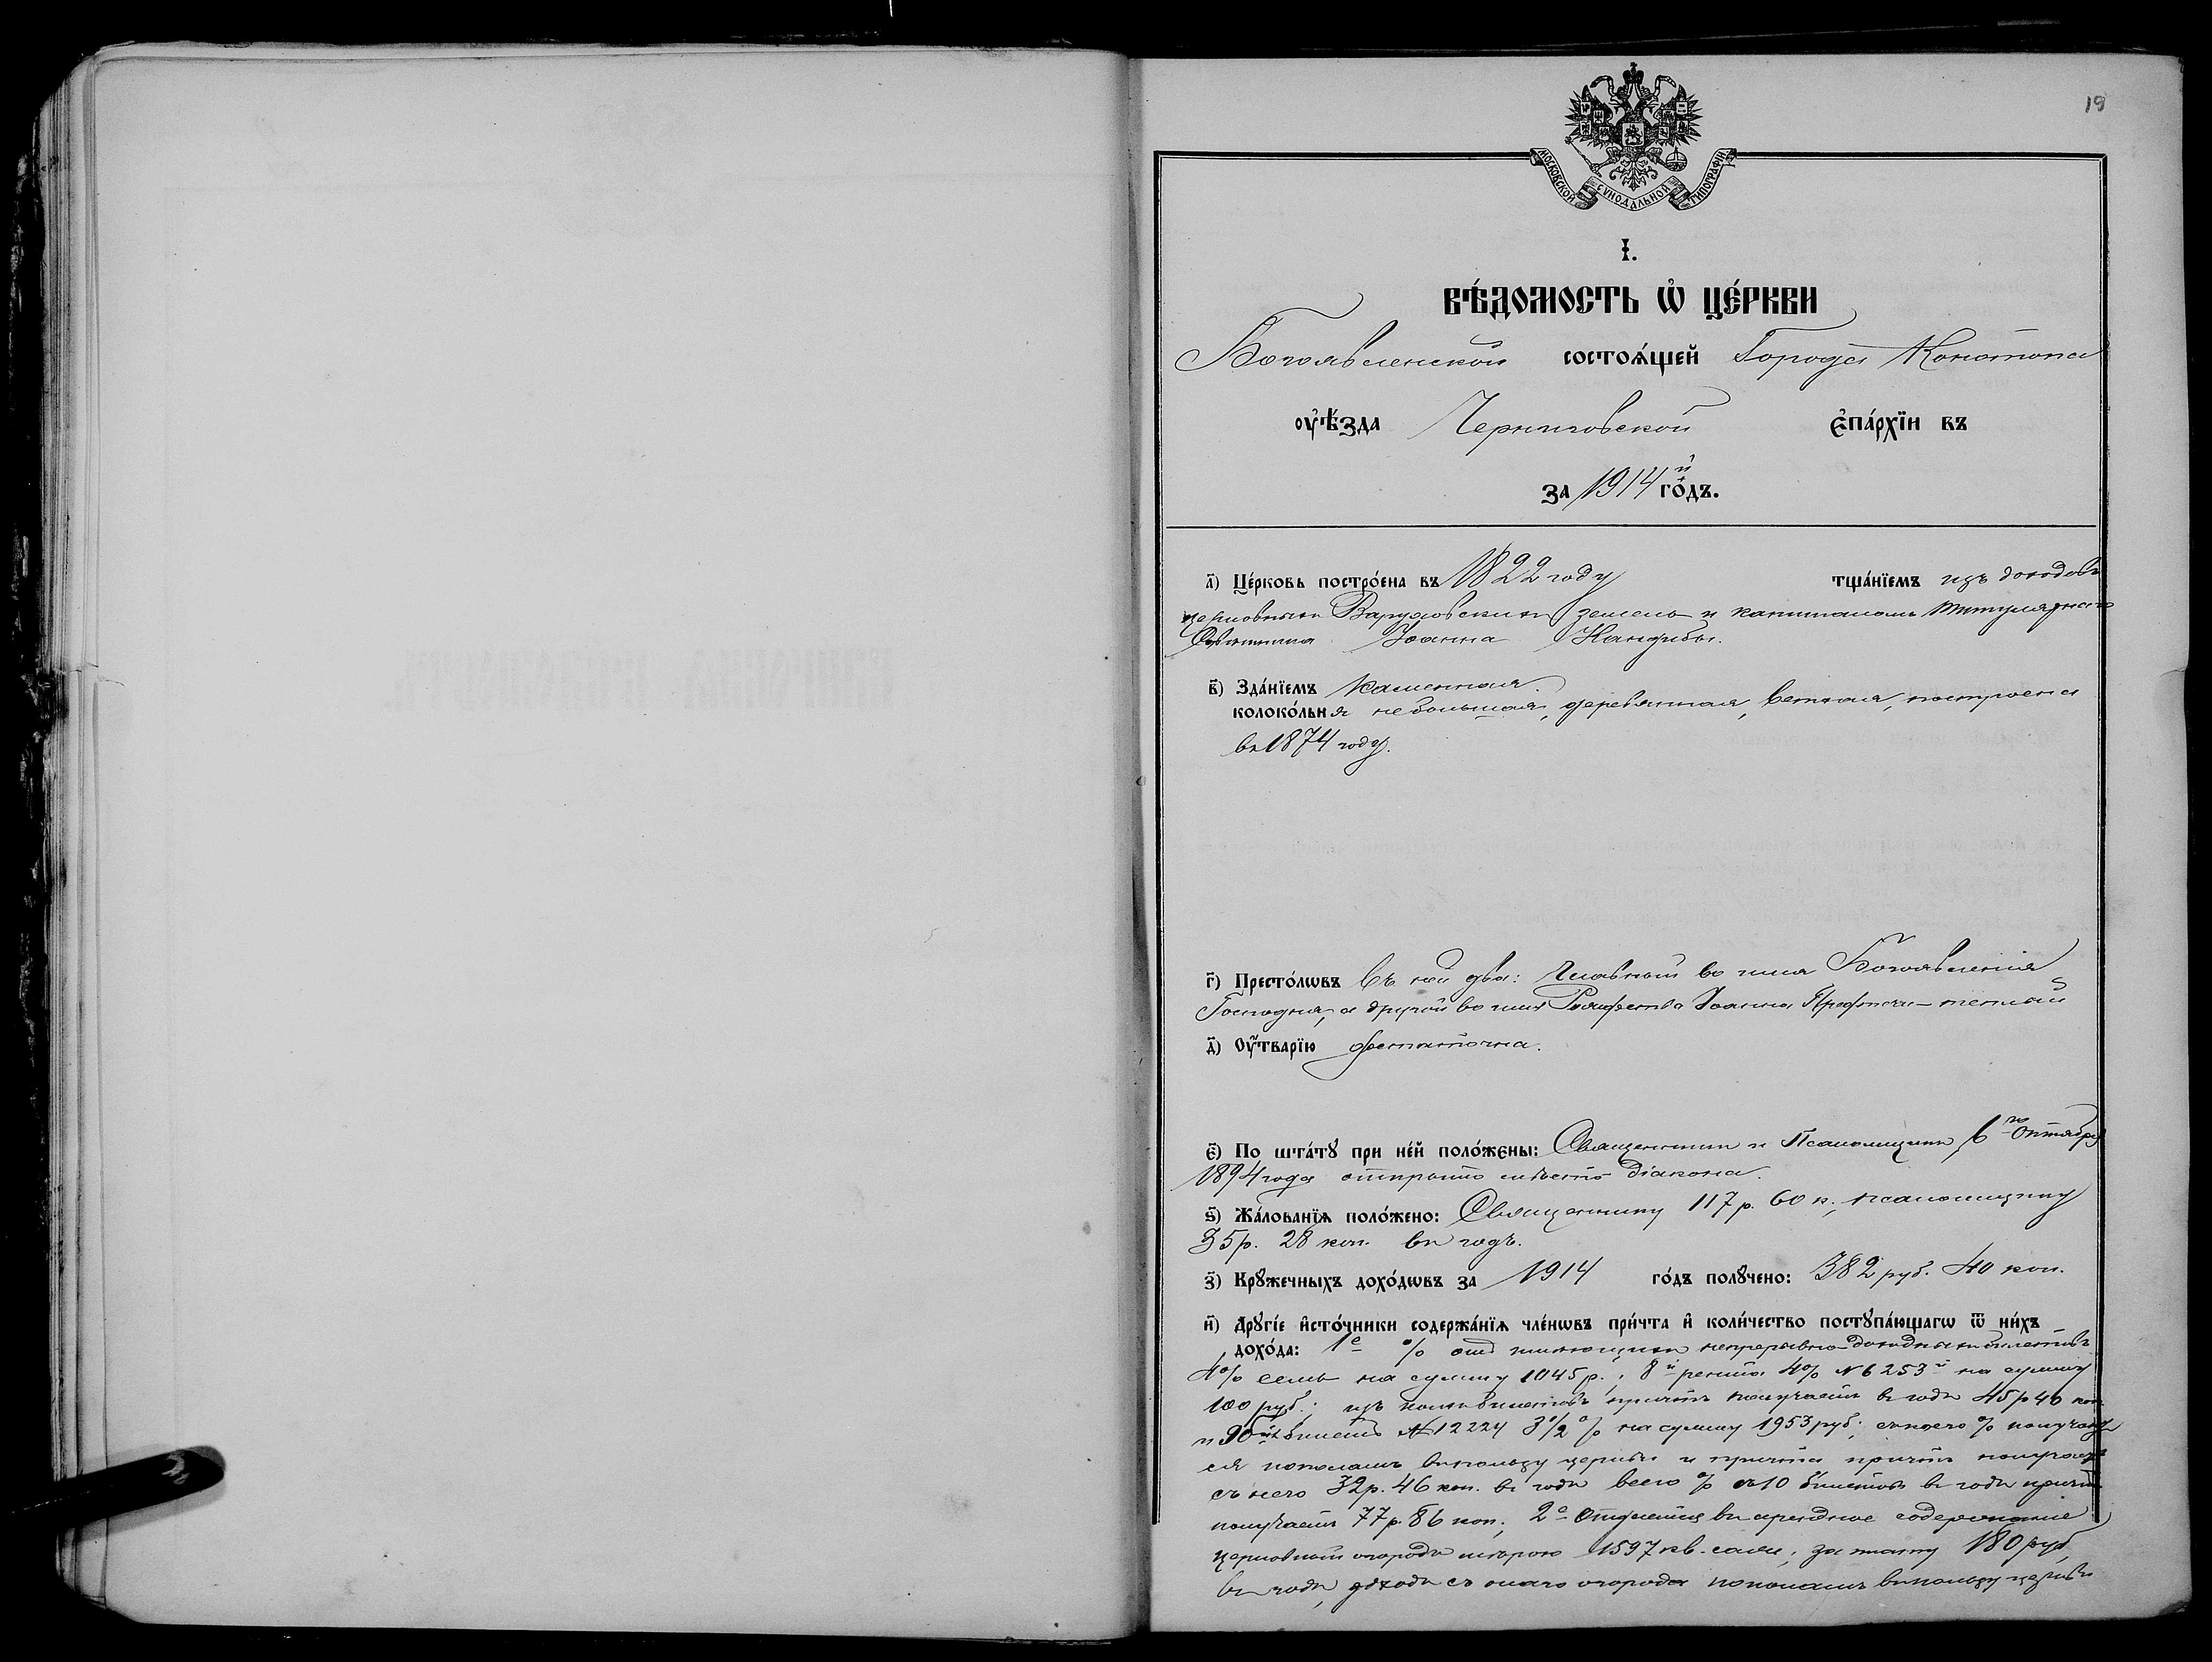 19
МОСКОВСКОЙ СѴНОДАЛЬНОЙ ТИПОГРАФІИ
І.
ВѢ́ДОМОСТЬ Ѡ҆ ЦЕ́РКВИ
Богоявленской состоѧ́щей Города Конотопа
ᲂу҆ѣ́зда Черниговской є҆па́рхїи въ
за 1914й го́дъ.
а҃) Це́рковь постро́ена въ 1822 году тща́нїемъ изъ доходовъ
церковныхъ земель и капиталомъ титулярнаго
Совѣтника Іоанна Кандибы.
в҃) Зда́нїемъ Каменная.
колоко́льня небольшая, деревянная, ветхая, построена
въ 1874 году.
г҃) Престо́лѡвъ въ ней два: Главный во имя Богоявленія
Господня, а другой во имя Рождества Іоанна Предтечи – теплый
д҃) Оу҆́тварїю достаточна.
є҃) По шта́тꙋ при не́й поло́жены: Священникъ и Псаломщикъ, 6го Октября
1894 года открыто мѣсто Діакона.
ѕ҃) Жа́лованїѧ поло́жено: Священнику 117 р. 60 к., псаломщику
35 р. 28 коп. въ годъ.
з҃) Крꙋ́жечныхъ дохо́дѡвъ за 1914 го́дъ полꙋ́чено: 382 руб. 40 коп.
и҃) Дрꙋгі́е и҆сто́чники содержа́нїѧ чле́нѡвъ при́чта и҆ коли́чество постꙋпа́ющагѡ ѿ ни́хъ
дохо́да: 1е % отъ имеющихся непрерывно-доходныхъ билетовъ
4% семь на сумму 1045 р.; 8й рента 4% № 6253й на сумму
100 руб.; изъ билетовъ причтъ получаетъ въ годъ 45 р 40 коп
и билетъ № 12224 3½% на сумму 1953 руб; съ коего % получают
ся пополамъ въ пользу церкви и причта причтъ получаетъ
съ него 32 р. 46 коп. въ годъ всего % съ 10 билетовъ въ годъ причтъ
получаетъ 77 р. 86 коп.; 2е Отдается въ арендное содержаніе
церковный огородъ мѣрою 1597 кв. саж; за плату 180 руб,
въ годъ, доходъ съ онаго огорода пополамъ въ пользу церкви